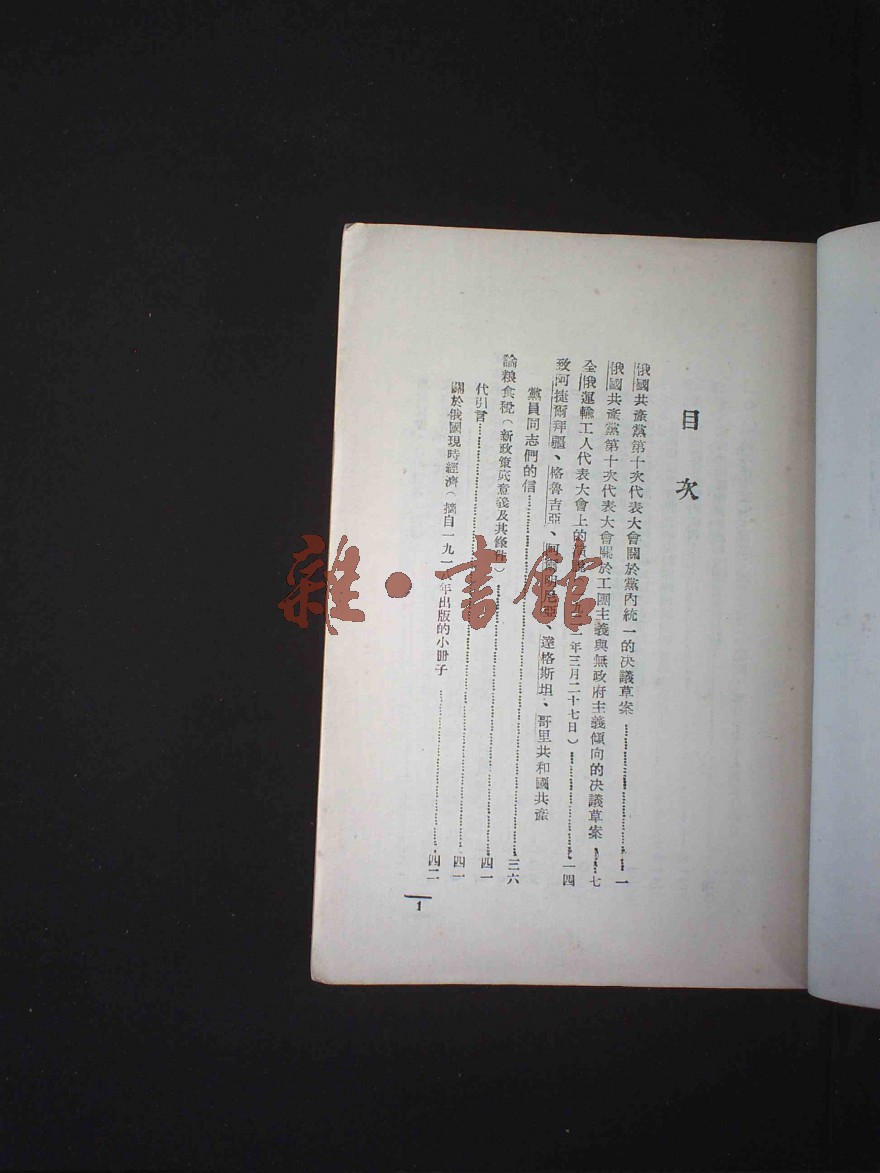 目次
俄國共產黨第十次代表大會關於黨內統一的決議草案……一
俄國共產黨第十次代表大會關於工團主義與無政府主義傾向的決議草案……七
全俄運輸工人代表大會上的 年三月二十七日)……一四
致阿捷爾拜疆、格魯吉亞、 尼亞、達格斯坦、哥里共和國共產
黨員同志們的信……三六
論粮食稅(新政策底意義及其條件)……四一
代引言……四一
關於俄國現時經濟(摘自一九一 年出版的小冊子……四二
1
雜·書館